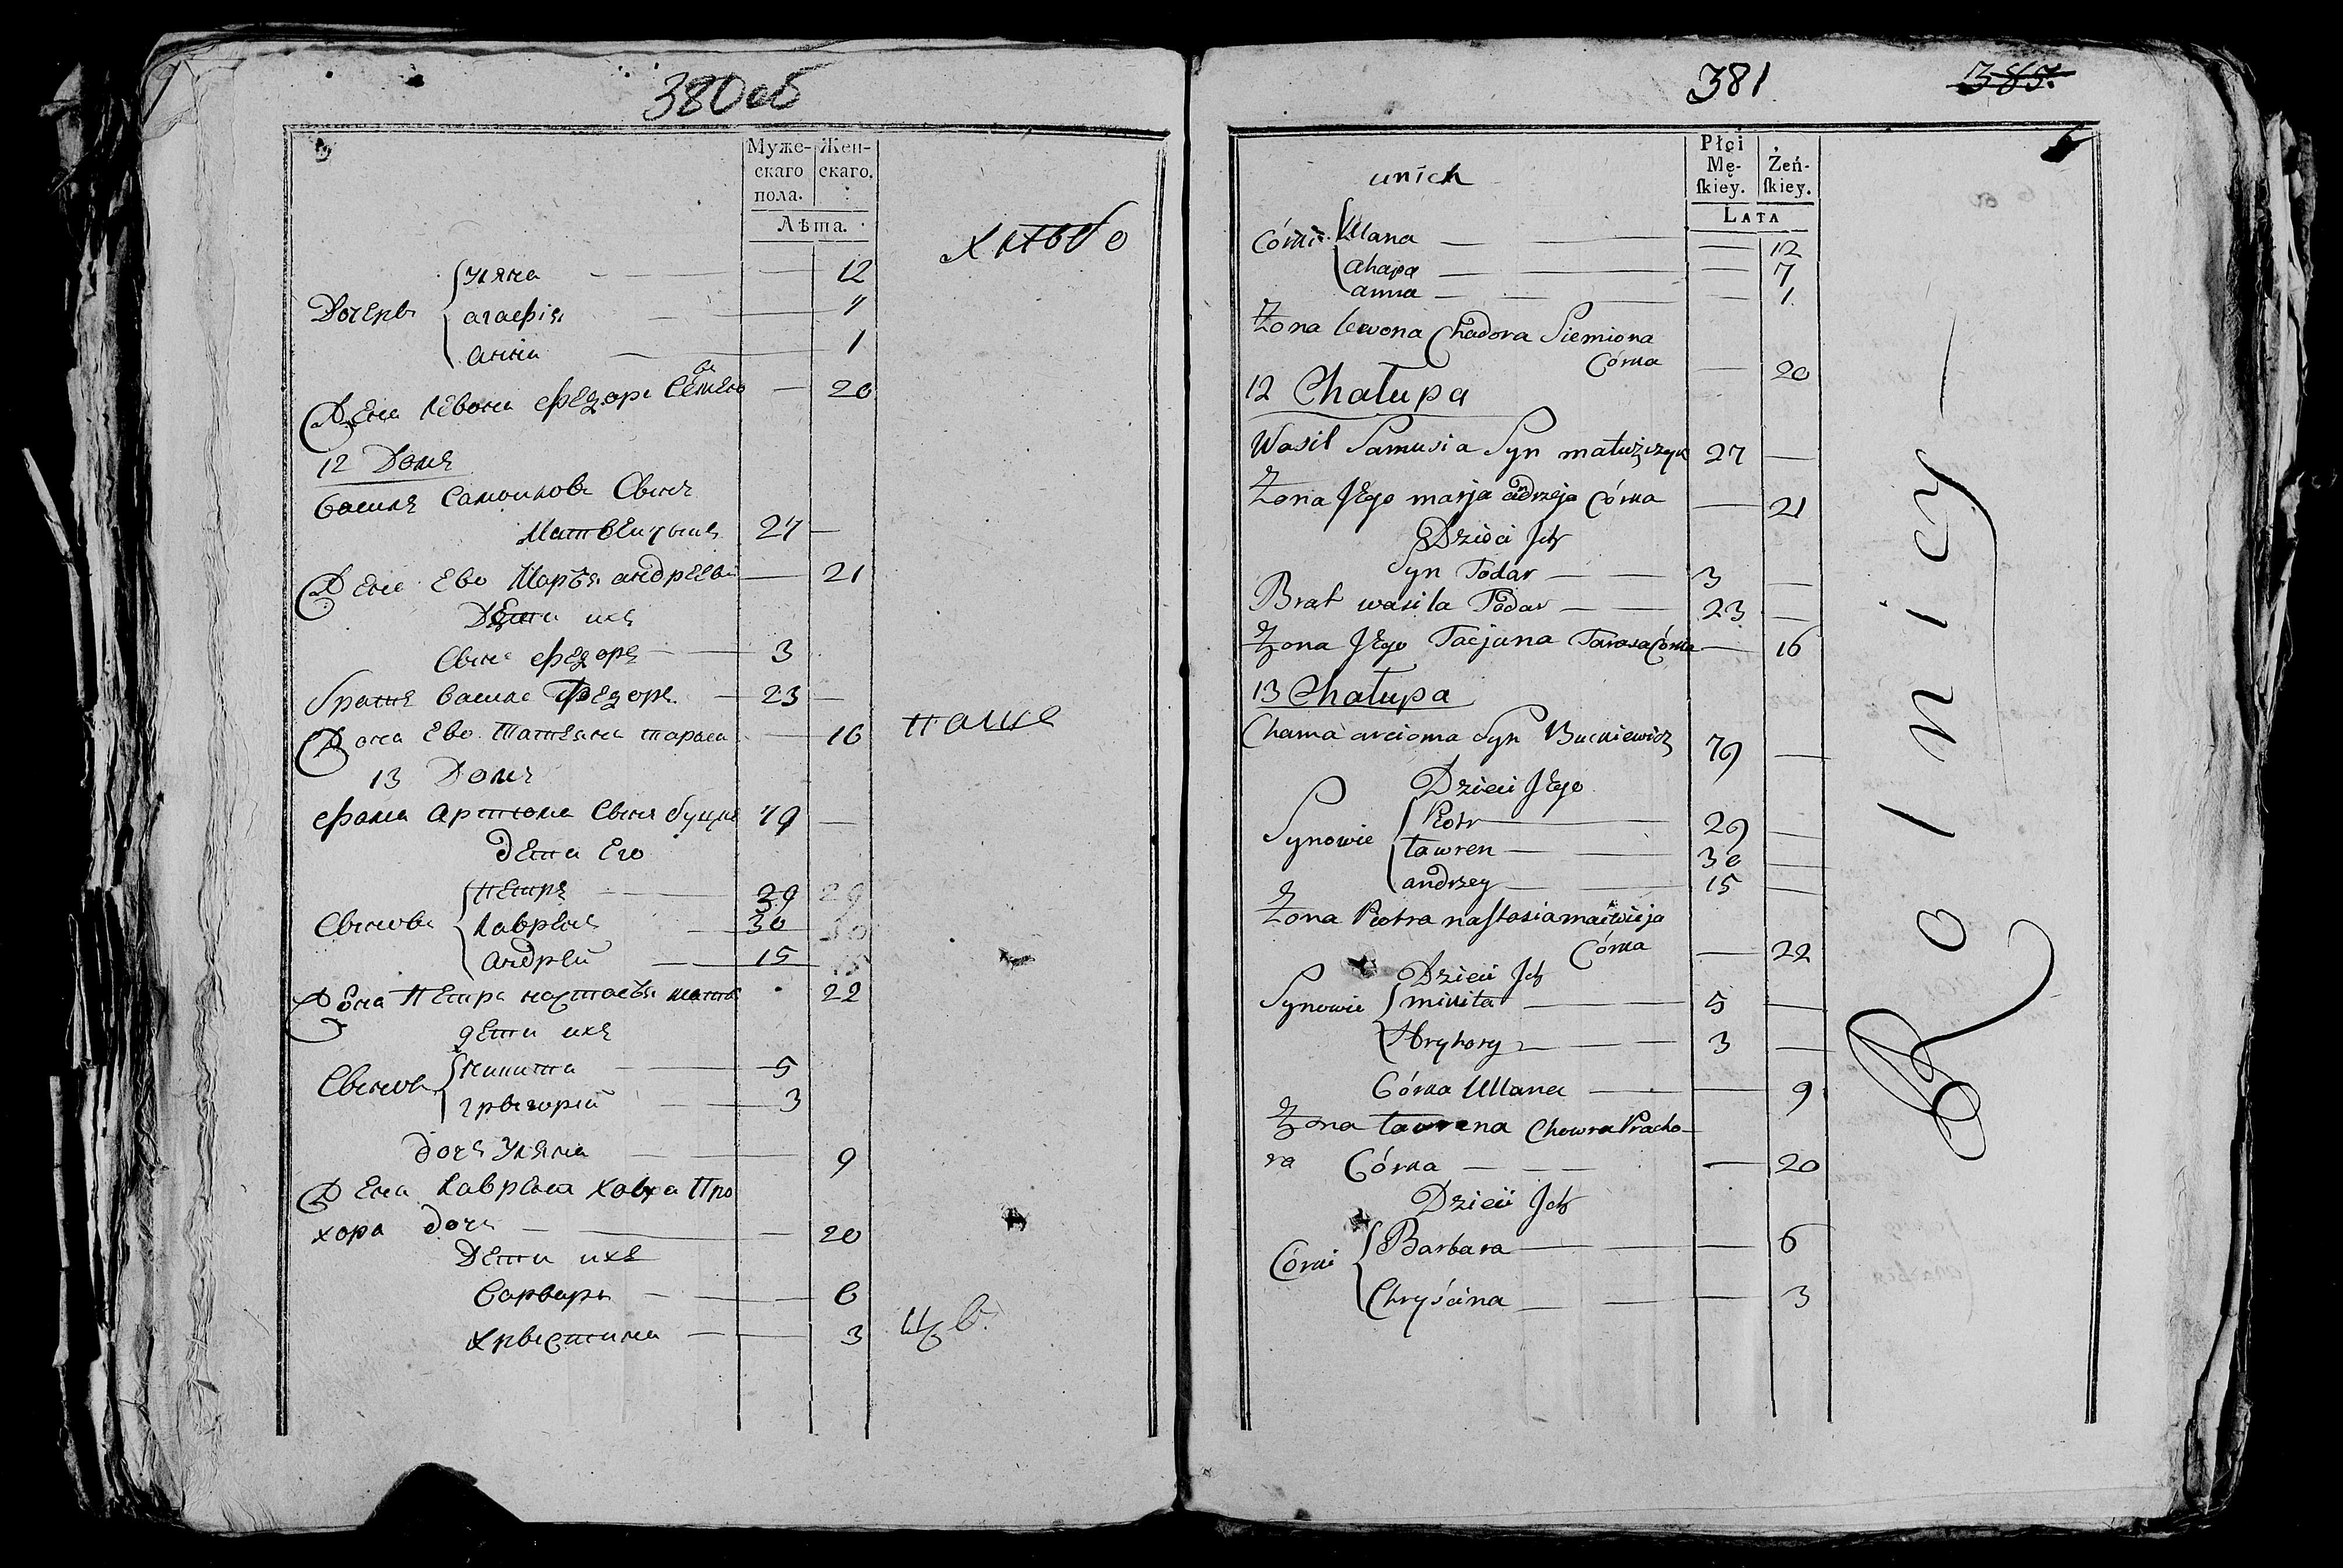 380 об
Муже-
скаго
пола.
Жен-
скаго.
Лѣта.
хлѣбо
Дочерѣ
Уляна — 12
агафія — 7
анна — 1
Жена левона Федора Семено
ва
— 20
12 Домъ
василъ Самойлова Сынъ
27 —
Жена Ево Марья андреева — 21
Дети ихъ
Сынъ Федоръ — 3
братъ василя Федоръ — 23 —
Жона Ево Татеяна тараса — 16
паше
13 Домъ
фама артюома Сынъ 79 —
дети Его
Сынове
Петръ — 29 29
лавренъ — 30 30
андрей — 15 15
Жона Петра настасья 22
дети ихъ
Сынове
Никита — 5
грыгорей — 3
дочъ Уляна — 9
Жена лаврена ховра Про
хора дочъ — 20
Дети ихъ
Варвара — 6
Хрыстина — 3
381
385.
6
unich
Płci
Mę-
ſkiey.
Żeń-
ſkiey.
LATA
Córki
Ullana — 12
ahapa — 7
anna — 1
Żona lewona Chadora Siemiona
Córka — 20
12 Chałupa
Wasil Samusia Syn matuszczyk 27 —
Żona Jego marja andrzeja Córka — 21
Dzieci Jch
Syn Todar — 3 —
Brat wasila Todar — 23 —
Żona Jego Tacjana Tarasa Córka — 16
13 Chałupa
Chama arcioma Syn Buckiewicz 79 —
Dzieci Jego
Synowie
Piotr — 29 —
ławren — 30 —
andrzey — 15 —
Żona Piotra nastasia maciwieja
Córka — 22
Dzieci Jch
Synowie
mikita — 5 —
Hryhory — 3 —
Córka Ullana — 9
Żona ławrena Chowra Pracho-
ra Córka — 20
Dzieci Jch
Córki
Barbara — 6
Chryścina — 3
Rolnicy —